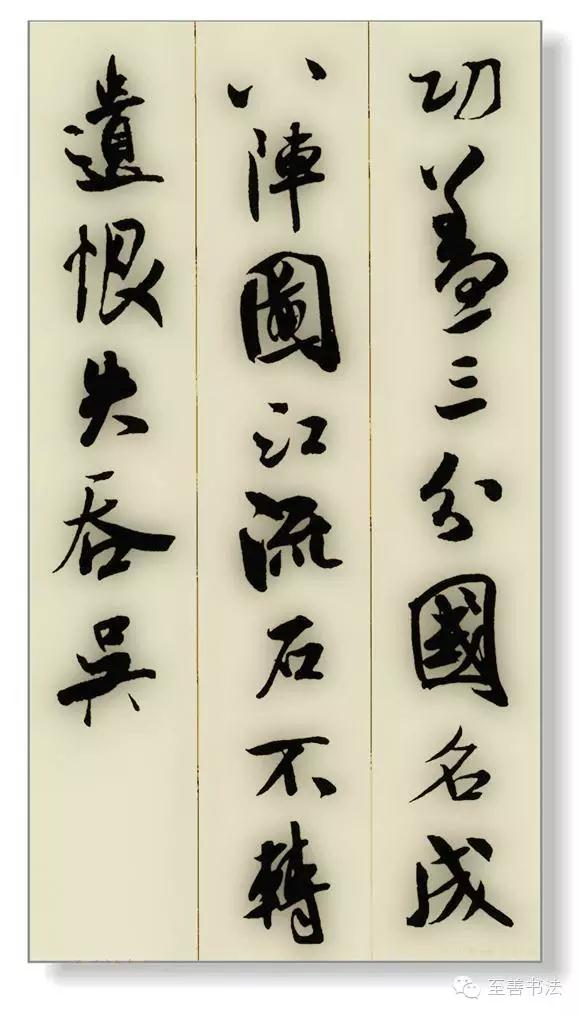 功蓋三分國名成
八陣圖江流石不轉
遺恨失吞吳
至善书法